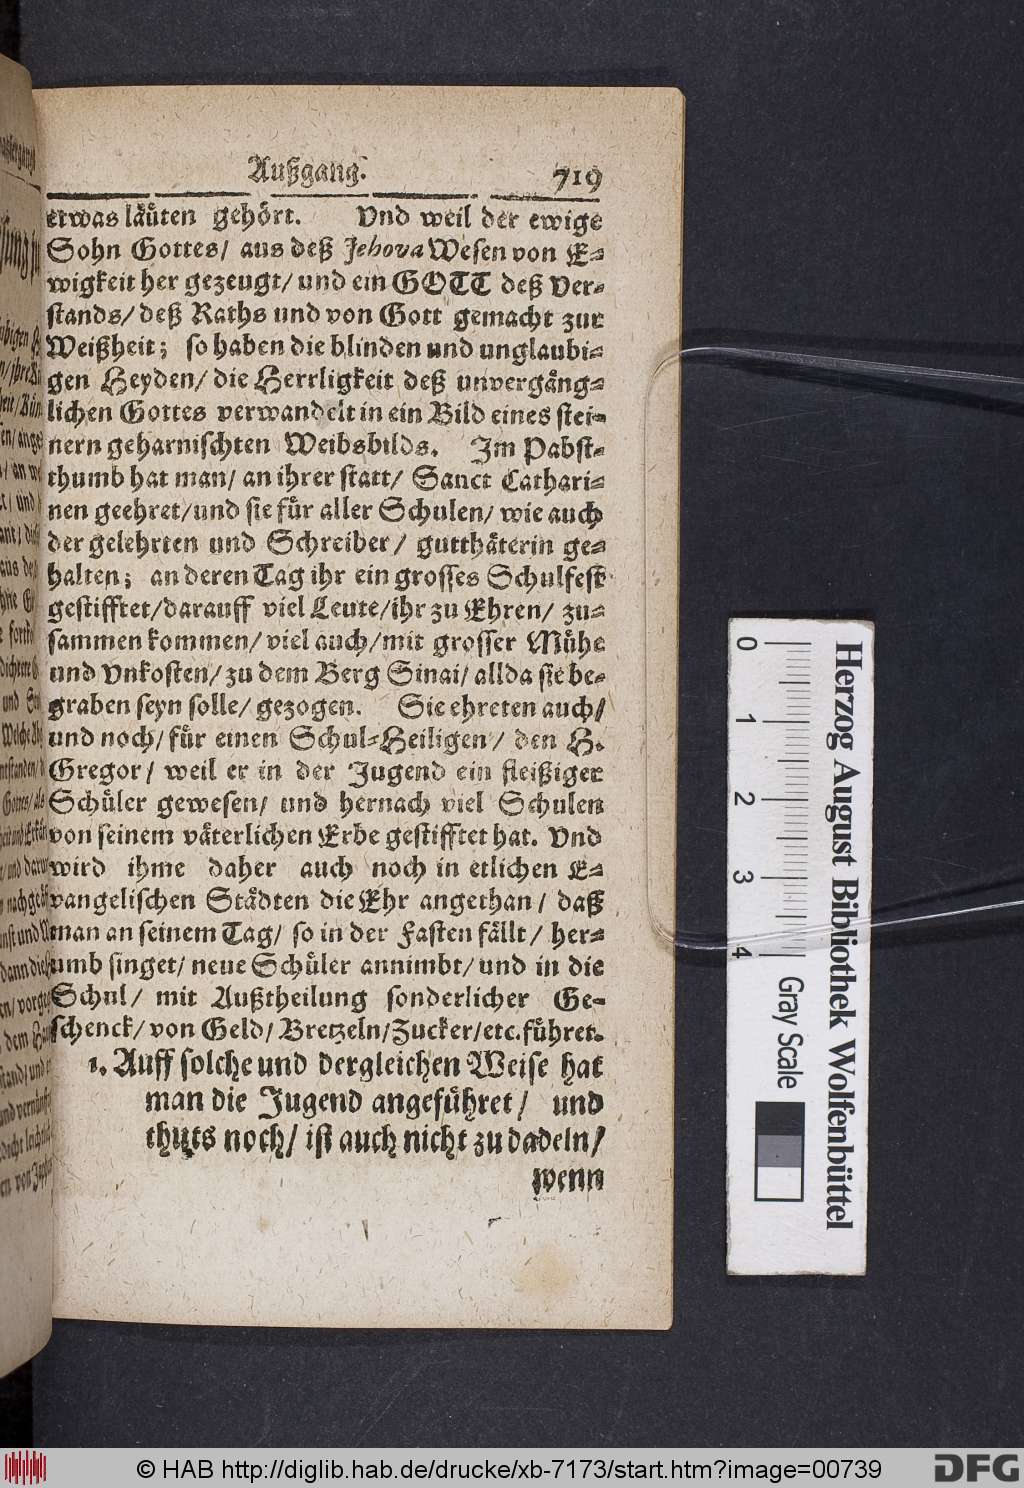 Außgang. 719
etwas läuten gehört. Vnd weil der ewige
Sohn Gottes/ aus deß Jehova Wesen von E-
wigkeit her gezeugt/ und ein GOTT deß Ver-
stands/ deß Raths und von Gott gemacht zur
Weißheit; so haben die blinden und unglaubi-
gen Heyden/ die Herrligkeit deß unvergäng-
lichen Gottes verwandelt in ein Bild eines stei-
nern geharnischten Weibsbilds. Im Pabst-
thumb hat man/ an ihrer statt/ Sanct Cathari-
nen geehret/ und sie für aller Schulen/ wie auch
der gelehrten und Schreiber/ gutthäterin ge-
halten; an deren Tag ihr ein grosses Schulfest
gestifftet/ darauff viel Leute/ ihr zu Ehren/ zu-
sammen kommen/ viel auch/ mit grosser Mühe
und Vnkosten/ zu dem Berg Sinai/ allda sie be-
graben seyn solle/ gezogen. Sie ehreten auch/
und noch/ für einen Schul-Heiligen/ den H.
Gregor/ weil er in der Jugend ein fleißiger
Schüler gewesen/ und hernach viel Schulen
von seinem väterlichen Erbe gestifftet hat. Vnd
wird ihme daher auch noch in etlichen E-
vangelischen Städten die Ehr angethan/ daß
man an seinem Tag/ so in der Fasten fällt/ her-
umb singet/ neue Schüler annimbt/ und in die
Schul/ mit Außtheilung sonderlicher Ge-
schenck/ von Geld/ Bretzeln/ Zucker/ etc. führet.
1. Auff solche und dergleichen Weise hat
man die Jugend angeführet/ und
thuts noch/ ist auch nicht zu dadeln/
wenn
0 1 2 3 4
Gray Scale
Herzog August Bibliothek Wolfenbüttel
© HAB http://diglib.hab.de/drucke/xb-7173/start.htm?image=00739
DFG